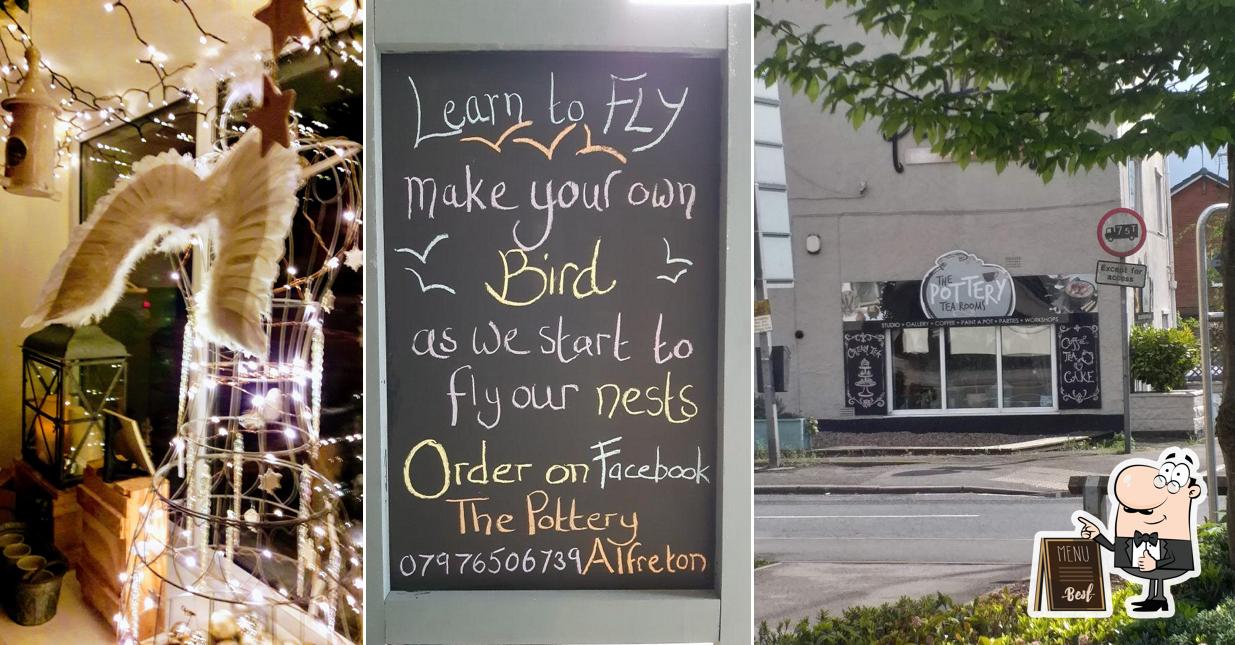 Learn to FLY
make your own
Bird
as we start to
fly our nests
Order on Facebook
The Pottery
07976506739 Alfreton
THE
POTTERY
TEAROOMS
STUDIO • GALLERY • COFFEE • PAINT A POT • PARTIES • WORKSHOPS
CREAM TEA
COFFEE
TEA
CAKE
7.5T
Except for
access
MENU
Best